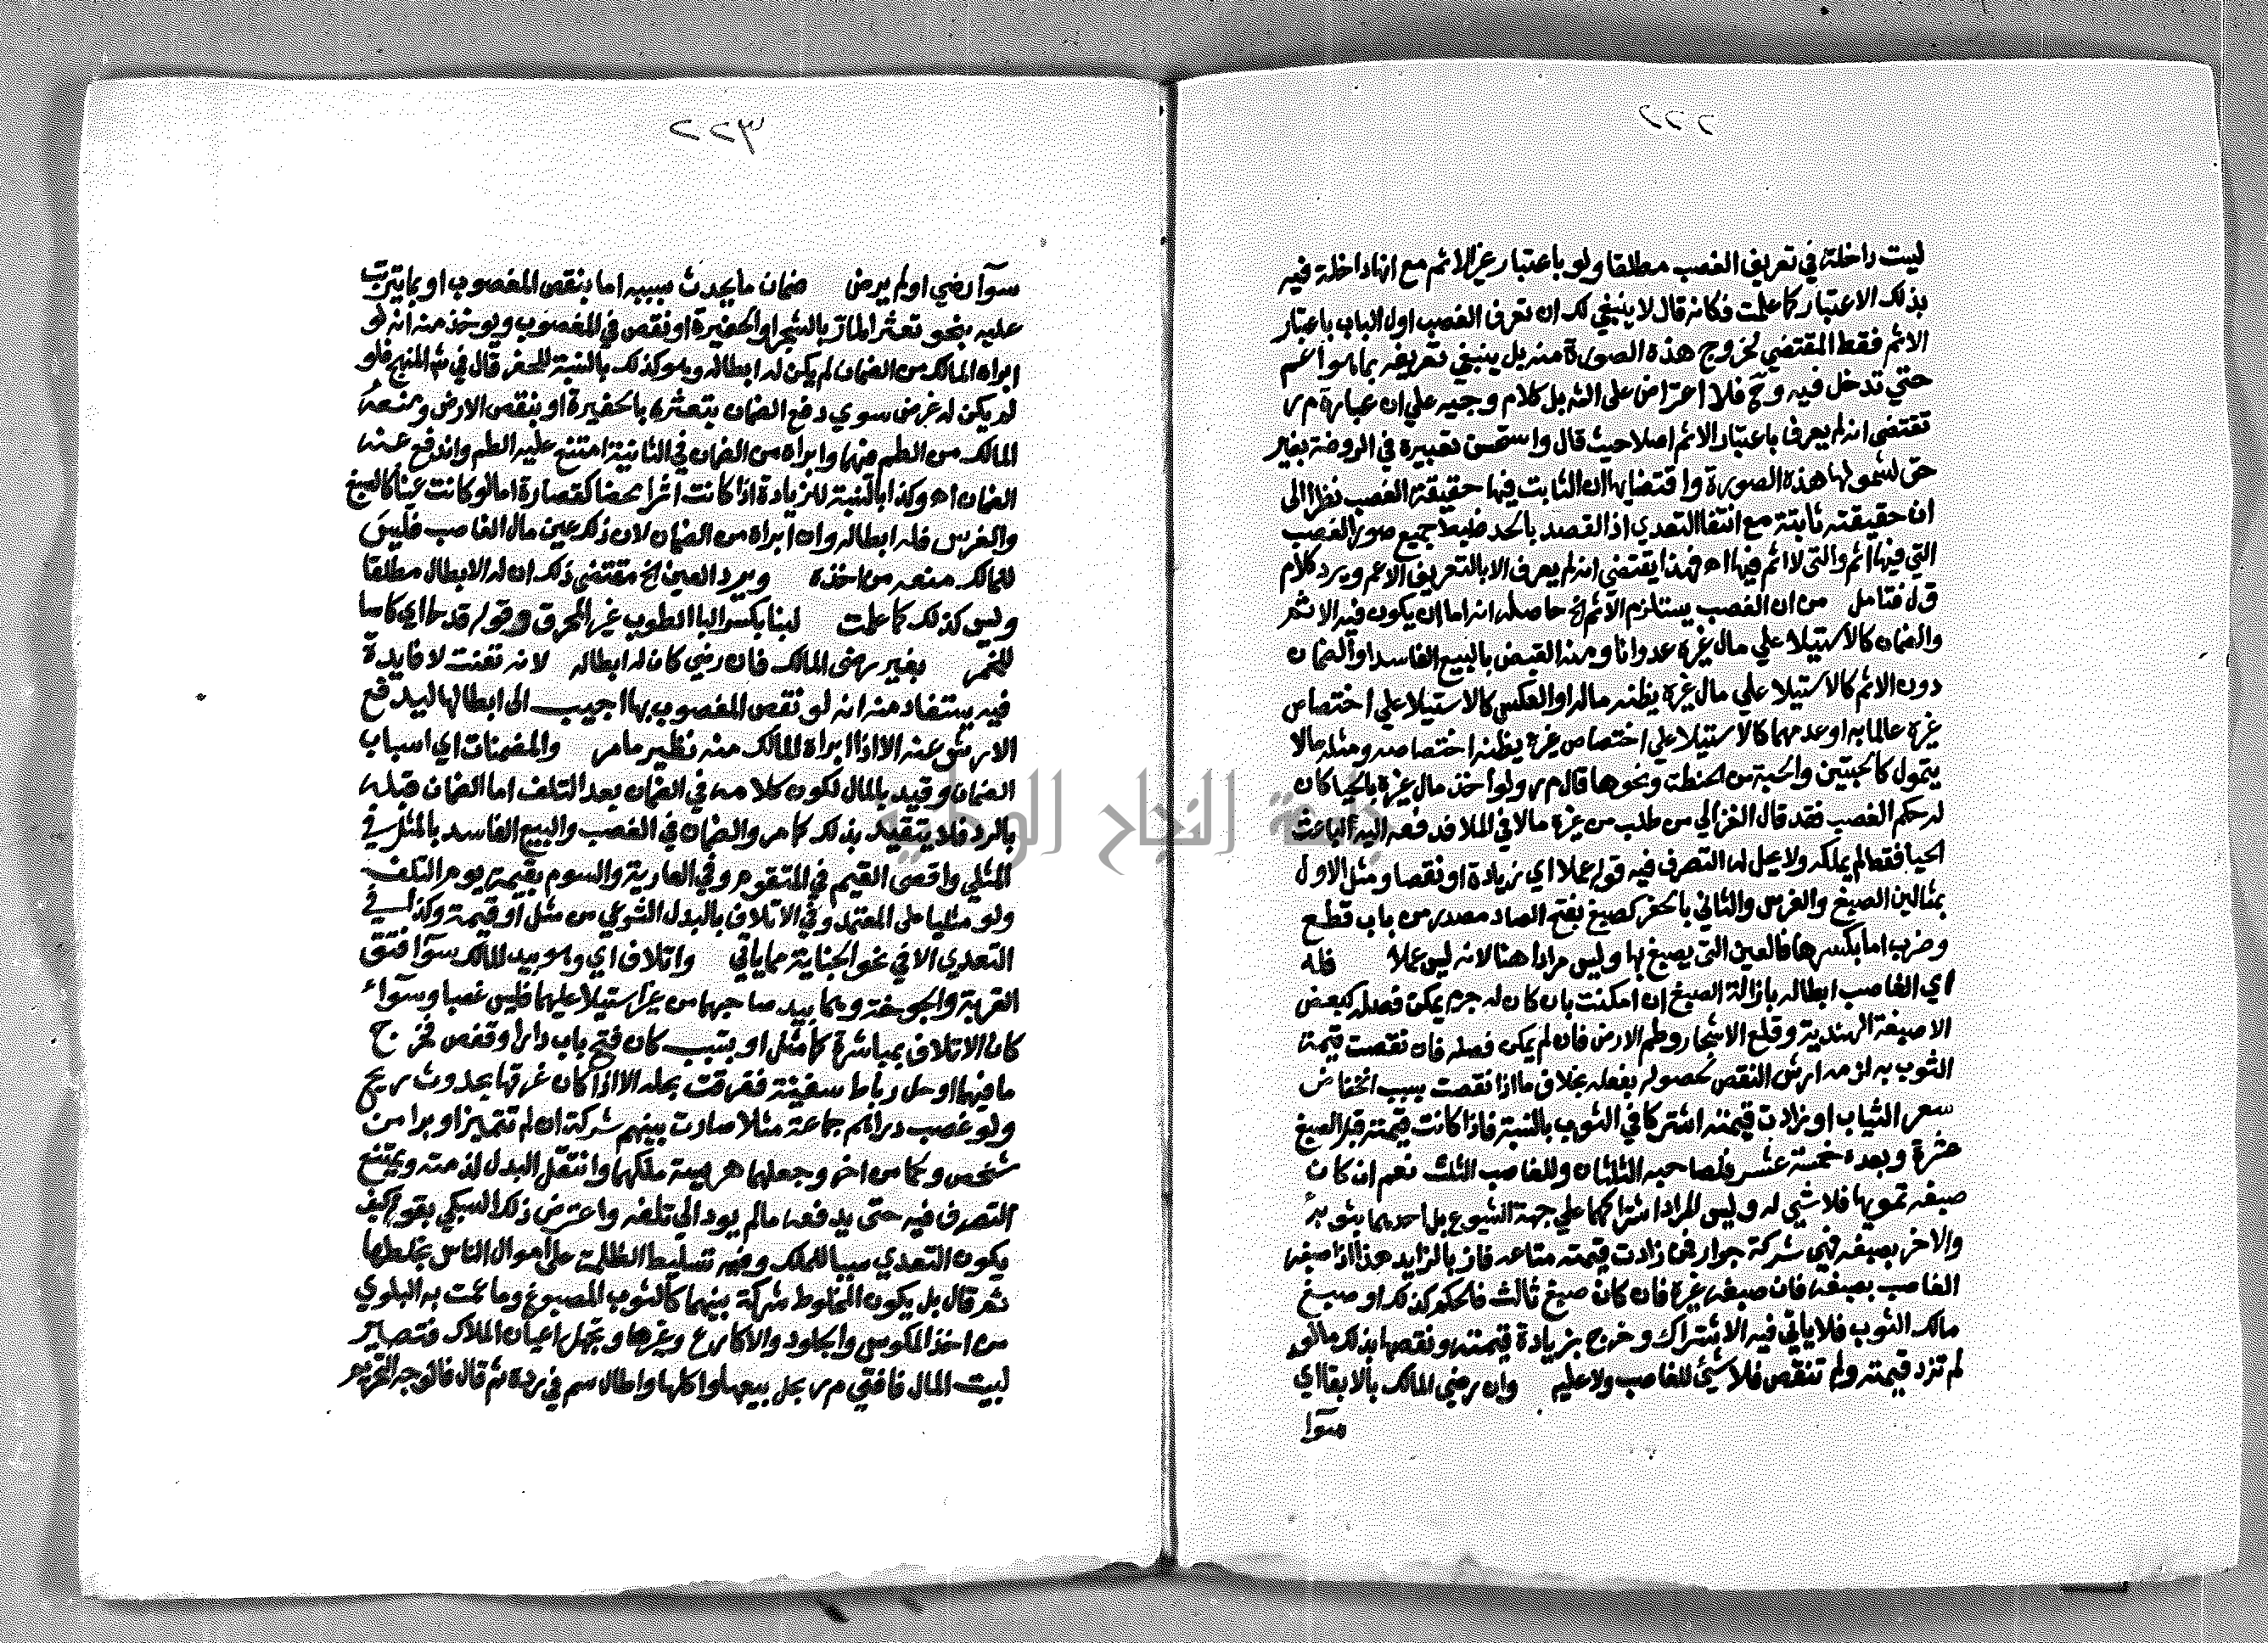 ٢٢٢
ليست داخلة في تعريف الغصب مطلقا ولو باعتبار غير الاثم مع انها داخلة فيه
بذلك الاعتبار كما علمت فكانه قال لا ينبغي لك ان تعرف الغصب اول الباب باعتبار
الاثم فقط المقتضي لخروج هذه الصورة منه بل ينبغي تعريفه بما هو اعم
حتي تدخل فيه وح فلا اعتراض على الش بل كلام وجيه علي ان عبارة م ر
تقتضي انه لم يعرف باعتبار الاثم اصلا حيث قال واستحسن تعبيره في الروضة بغير
حق لشمولها هذه الصورة واقتضايها ان الثابت فيها حقيقة الغصب نظرا الى
ان حقيقته ثابتة مع انتفا التعدي اذ القصد بالحد ضبط جميع صور الغصب
التي فيها اثم والتى لا اثم فيها اه فهذا يقتضي انه لم يعرف الا بالتعريف الاعم ويرد كلام
ق ل فتامل من ان الغصب يستلزم الاثم الخ حاصله انه اما ان يكون فيه الاثم
والضمان كالاستيلا علي مال غيره عدوانا ومنه القبض بالبيع الفاسد او الضمان
دون الاثم كالاستيلا علي مال غيره يظنه ماله او العكس كالاستيلا علي اختصاص
غيره عالما به او عدمهما كالاستيلا علي اختصاص غيره يظنه اختصاصه ومثله مالا
يتمول كالحبتين والحبة من الحنطة ونحوها قال م ر ولو اخذ مال غيره بالحيا كان
له حكم الغصب فقد قال الغزالي من طلب من غيره مالا في الملا فدفعه اليه لباعث
الحيا فقط لم يملكه ولا يحل له التصرف فيه قوله عملا اي زيادة او نقصا ومثل الاول
بمثالين الصبغ والغرس والثاني بالحفر كصبغ بفتح الصاد مصدر من باب قطع
وضرب اما بكسرها فالعين التى يصبغ بها وليس مرادا هنا لانه ليس عملا فله
اي الغاصب ابطاله بازالة الصبغ ان امكنت بان كان له جرم يمكن فصله كبعض
الاصبغة الهندية وقلع الاشجار وطم الارض فان لم يمكن فصله فان نقصت قيمة
الثوب به لزمه ارش النقص لحصوله بفعله بخلاف ما اذا نقصت بسبب انخفاض
سعر الثياب او زادت قيمته اشتركا في الثوب بالنسبة فاذا كانت قيمته قبل الصبغ
عشرة وبعده خمسة عشر فلصاحبه الثلثان وللغاصب الثلث نعم ان كان
صبغه تمويها فلا شي له وليس المراد اشتراكهما علي جهة الشيوع بل احدهما بثوبه
والاخر بصبغه فهي شركة جوار فمن زادت قيمته متاعه فاز بالزايد هذا اذا صبغه
الغاصب بصبغه فان صبغه غيره فان كان صبغ ثالث فالحكم كذلك او صبغ
مالك الثوب فلا ياتي فيه الاشتراك وخرج بزيادة قيمته ونقصها بذلك ما لو
لم تزد قيمته ولم تنقص فلا شيئ للغاصب ولا عليه وان رضي المالك بالابقا اي
سوآ
٢٢٣
سوآ رضي او لم يرض ضمان ما يحدث بسببه اما بنقص المغصوب او بما يترتب
عليه بنحو تعثر المارّ بالشجر او الحفيرة او نقص في المغصوب ويوخذ منه انه لو
ابراه المالك من الضمان لم يكن له ابطاله وهو كذلك بالنسبة للحفر قال في ش المنهج فلو
لم يكن له غرض سوي دفع الضمان بتعثره بالحفيرة او بنقص الارض ومنعه
المالك من الطم فيهما وابراه من الضمان في الثانية امتنع عليه الطم واندفع عنه
الضمان اه وكذا بالنسبة للزيادة اذا كانت اثرا محضا كقصارة اما لو كانت عينا كالصبغ
والغرس فله ابطاله وان ابراه من الضمان لان ذلك عين مال الغاصب فليس
للمالك منعه من اخذه ويرد العين الخ مقتضى ذلك ان له الابطال مطلقا
وليس كذلك كما علمت لبنا بكسر البا الطوب غير المحرق وقوله قدحا اي كاسا
للخمر بغير رضى المالك فان رضي كان له ابطاله لانه تعنت لا فايدة
فيه يستفاد منه انه لو نقص المغصوب بها اجيب الى ابطالها ليدفع
الارش عنه الا اذا ابراه المالك منه نظير ما مر والمضمنات اي اسباب
الضمان وقيد بالمال لكون كلامه في الضمان بعد التلف اما الضمان قبله
بالرد فلا يتقيد بذلك كما مر والضمان في الغصب والبيع الفاسد بالمثل في
المثلي واقصى القيم في المتقوم وفي العارية والسوم بقيمة يوم التلف
ولو مثليا على المعتمد وفي الاتلاف بالبدل الشرعي من مثل او قيمة وكذلك في
التعدي الا في نحو الجناية مما ياتي واتلاف اي وهو بيد المالك سوآ افتق
القربة والجوخة وهما بيد صاحبهما من غير استيلا عليهما فليس غصبا وسوآء
كان الاتلاف بمباشرة كما مثل او بتسبب كان فتح باب دار او قفص فخرج
ما فيهما او حل رباط سفينة فغرقت بحله الا اذا كان غرقها بحدوث ريح
ولو غصب دراهم جماعة مثلا صارت بينهم شركة ان لم تتميز او برا من
شخص ولحما من اخر وجعلهما هريسة ملكها وانتقل البدل لذمته ويمتنع
التصرف فيه حتى يدفعه ما لم يود الي تلفه واعترض ذلك السبكي بقوله كيف
يكون التعدي سببا للملك وفيه تسليط الظلمة على اموال الناس بخلطها
ثم قال بل يكون المخلوط شركة بينهما كالثوب المصبوغ وما عمت به البلوي
من اخذ المكوس والجلود والاكارع وغيرها وتجهل اعيان الملاك فتصير
لبيت المال فافتي م ر بحل بيعها واكلها واطال سم في رده ثم قال فالوجه التحريم